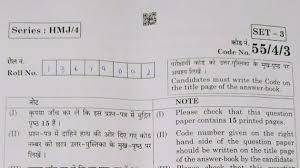 Series : HMJ/4
SET – 3
कोड नं.
Code No. 55/4/3
रोल नं.
Roll No.
परीक्षार्थी कोड को उत्तर-पुस्तिका के मुख-पृष्ठ पर अवश्य लिखें ।
Candidates must write the Code on the title page of the answer-book.
नोट
(I) कृपया जाँच कर लें कि इस प्रश्न-पत्र में मुद्रित पृष्ठ 15 हैं ।
(II) प्रश्न-पत्र में दाहिने हाथ की ओर दिए गए कोड नम्बर को छात्र उत्तर-पुस्तिका के मुख-पृष्ठ पर लिखें ।
NOTE
(I) Please check that this question paper contains 15 printed pages.
(II) Code number given on the right hand side of the question paper should be written on the title page of the answer-book by the